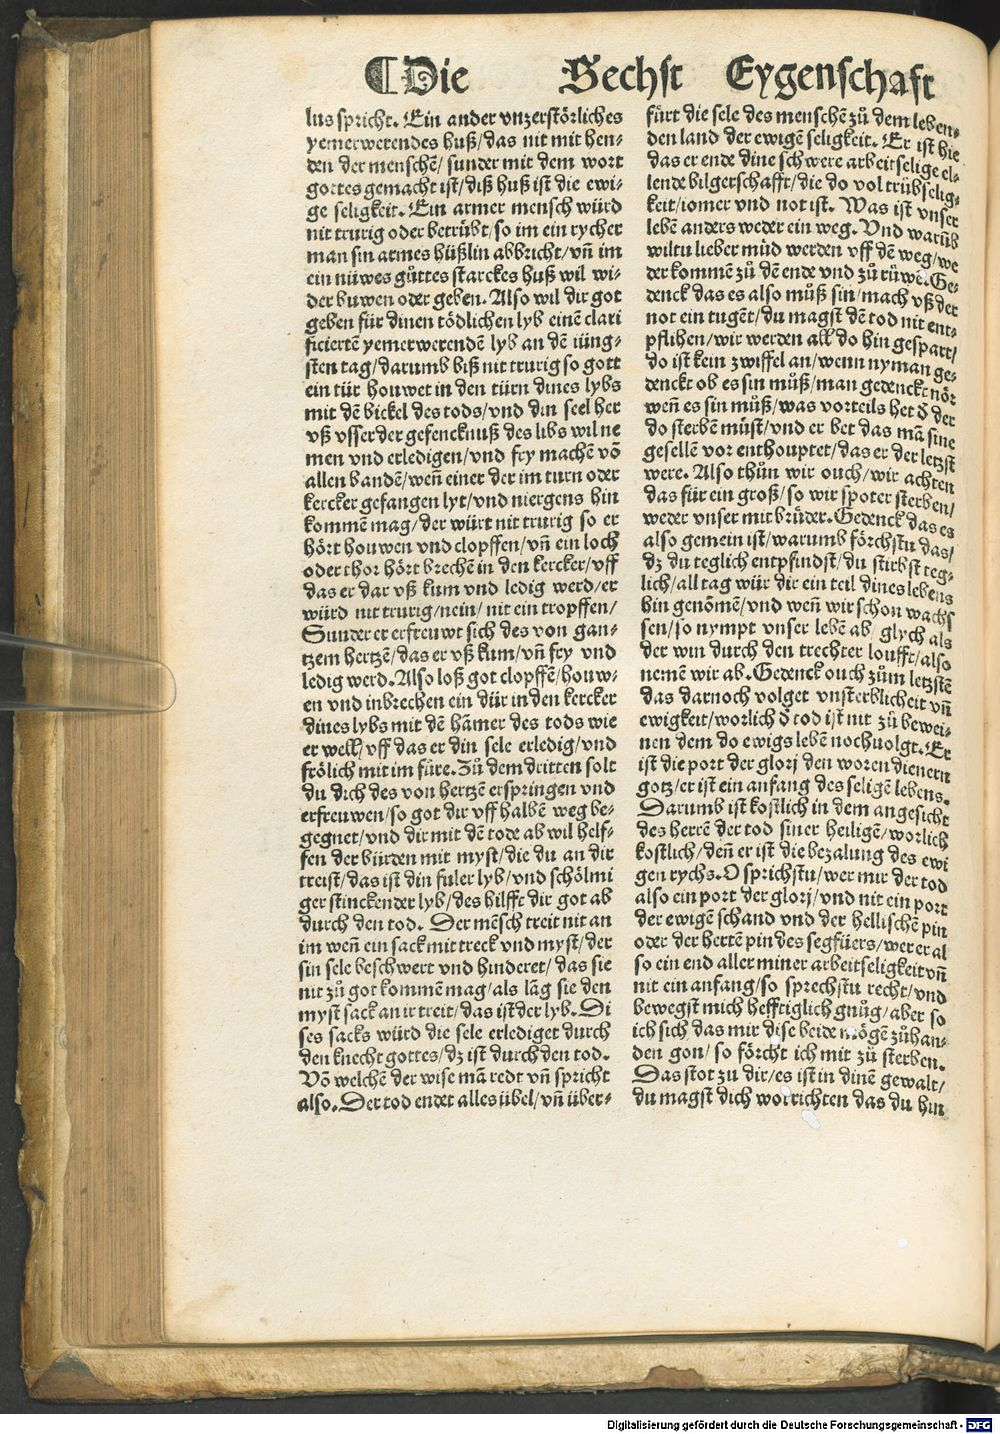 ¶ Die Sechst Eygenschaft
lus spricht. Ein ander vnzerstörliches
yemerwerendes huß/das nit mit hen-
den der menschē/ sunder mit dem wort
gottes gemacht ist/diß huß ist die ewi-
ge seligkeit. Ein armer mensch würd
nit trurig oder betrübt/so im ein rycher
man sin armes hüßlin abbricht/vñ im
ein nüwes gůttes starckes huß wil wi-
der buwen oder geben. Also wil dir got
geben für dinen tödlichen lyb einē clari
ficiertē yemerwerendē lyb an dē iüng-
sten tag/darumb biß nit trurig so gott
ein tür houwet in den türn dines lybs
mit dē bickel des tods/vnd din seel her
vß vsser der gefencknuß des libs wil ne
men vnd erledigen/vnd fry machē vō
allen bandē/weñ einer der im turn oder
kercker gefangen lyt/vnd niergens hin
kommē mag/der würt nit trurig so er
hört houwen vnd clopffen/vñ ein loch
oder thor hört brechē in den kercker/vff
das er dar vß kum vnd ledig werd/er
würd nit trurig/nein/ nit ein tropffen/
Sunder er erfreuwt sich des von gan-
tzem hertzē/das er vß kum/vñ fry vnd
ledig werd. Also loß got clopffē/houw-
en vnd inbrechen ein dür in den kercker
dines lybs mit dē hāmer des tods wie
er well/vff das er din sele erledig/vnd
frölich mit im füre. Zů dem dritten solt
du dich des von hertzē erspringen vnd
erfreuwen/so got dir vff halbē weg be-
gegnet/vnd dir mit dē tode ab wil helf-
fen der bürden mit myst/die du an dir
treist/das ist din fuler lyb/vnd schölmi
ger stinckender lyb/des hilfft dir got ab
durch den tod. Der mēsch treit nit an
im weñ ein sack mit treck vnd myst/der
sin sele beschwert vnd hinderet/das sie
nit zů got kommē mag/als lāg sie den
myst sack an ir treit/das ist der lyb. Di
ses sacks würd die sele erlediget durch
den knecht gottes/dz ist durch den tod.
Vō welchē der wise mā redt vñ spricht
also. Der tod endet alles übel/vñ über-
fürt die sele des menschē zů dem leben-
den land der ewigē seligkeit. Er ist hie
das er ende dine schwere arbeitselige el-
lende bilgerschafft/die do vol trübselig-
keit/iomer vnd not ist. Was ist vnser
lebē anders weder ein weg. Vnd warūb
wiltu lieber müd werden vff dē weg/we
der kommē zů dē ende vnd zů rüwē. Ge-
denck das es also můß sin/mach vß der
not ein tugēt/du magst dē tod nit ent-
pflihen/wir werden all do hin gespart/
do ist kein zwiffel an/wenn nyman ge-
denckt ob es sin můß/man gedenckt nōr
weñ es sin můß/was vorteils het d̄ der
do sterbē müst/vnd er bet das mā sine
gesellē vor enthouptet/das er der letzst
were. Also thůn wir ouch/wir achten
das für ein groß/so wir spoter sterben/
weder vnser mit brüder. Gedenck das es
also gemein ist/warumb förchstu das/
dz du teglich entpfindst/du stirbst teg-
lich/all tag wür dir ein teil dines lebens
hin genōmē/vnd weñ wir schon wachs
sen/so nympt vnser lebē ab/ glych als
der win durch den trechter loufft/also
nemē wir ab. Gedenck ouch zům letzstē
das darnoch volget vnsterblicheit vñ
ewigkeit/worlich d̄ tod ist nit zů bewei-
nen dem do ewigs lebē nochuolgt. Er
ist die port der glorj den woren dienern
gotz/er ist ein anfang des seligē lebens.
Darumb ist kostlich in dem angesicht
des herrē der tod siner heiligē/worlich
kostlich/deñ er ist die bezalung des ewi
gen rychs. O sprichstu/wer mir der tod
also ein port der glorj/vnd nit ein port
der ewigē schand vnd der hellischē pin
oder der hertē pin des segfüers/wer er al
so ein end aller miner arbeitseligkeit vñ
nit ein anfang/so sprechstu recht/vnd
bewegst mich hefftiglich gnůg/aber so
ich sich das mir dise beide mögē zůhan-
den gon/ so förcht ich mit zů sterben.
Das stot zu dir/es ist in dinē gewalt/
du magst dich vorrichten das du hin
Digitalisierung gefördert durch die Deutsche Forschungsgemeinschaft - DFG